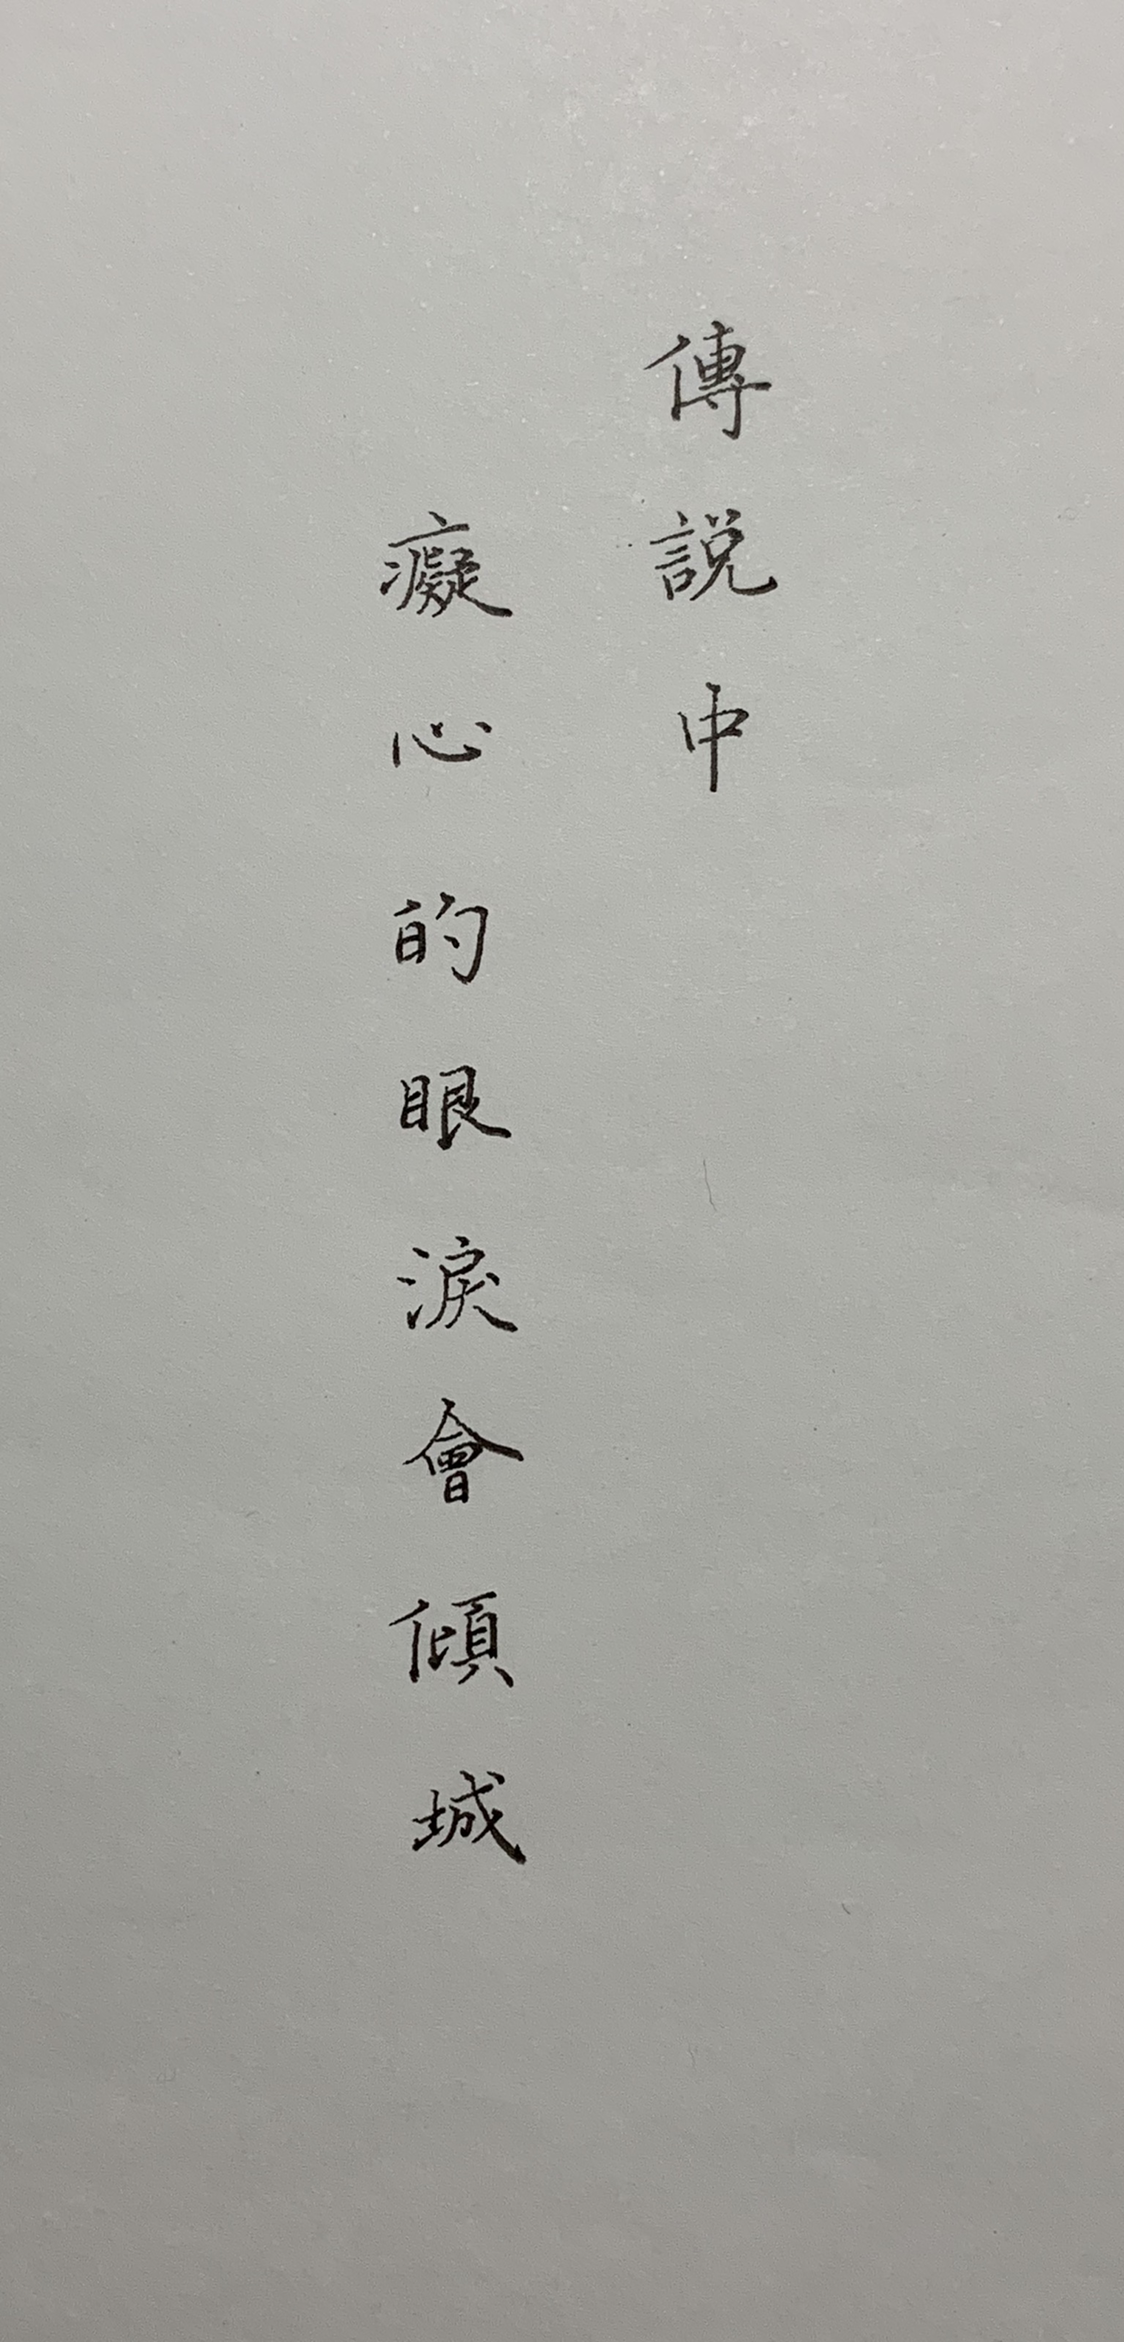 傳説中
癡心的眼淚會傾城